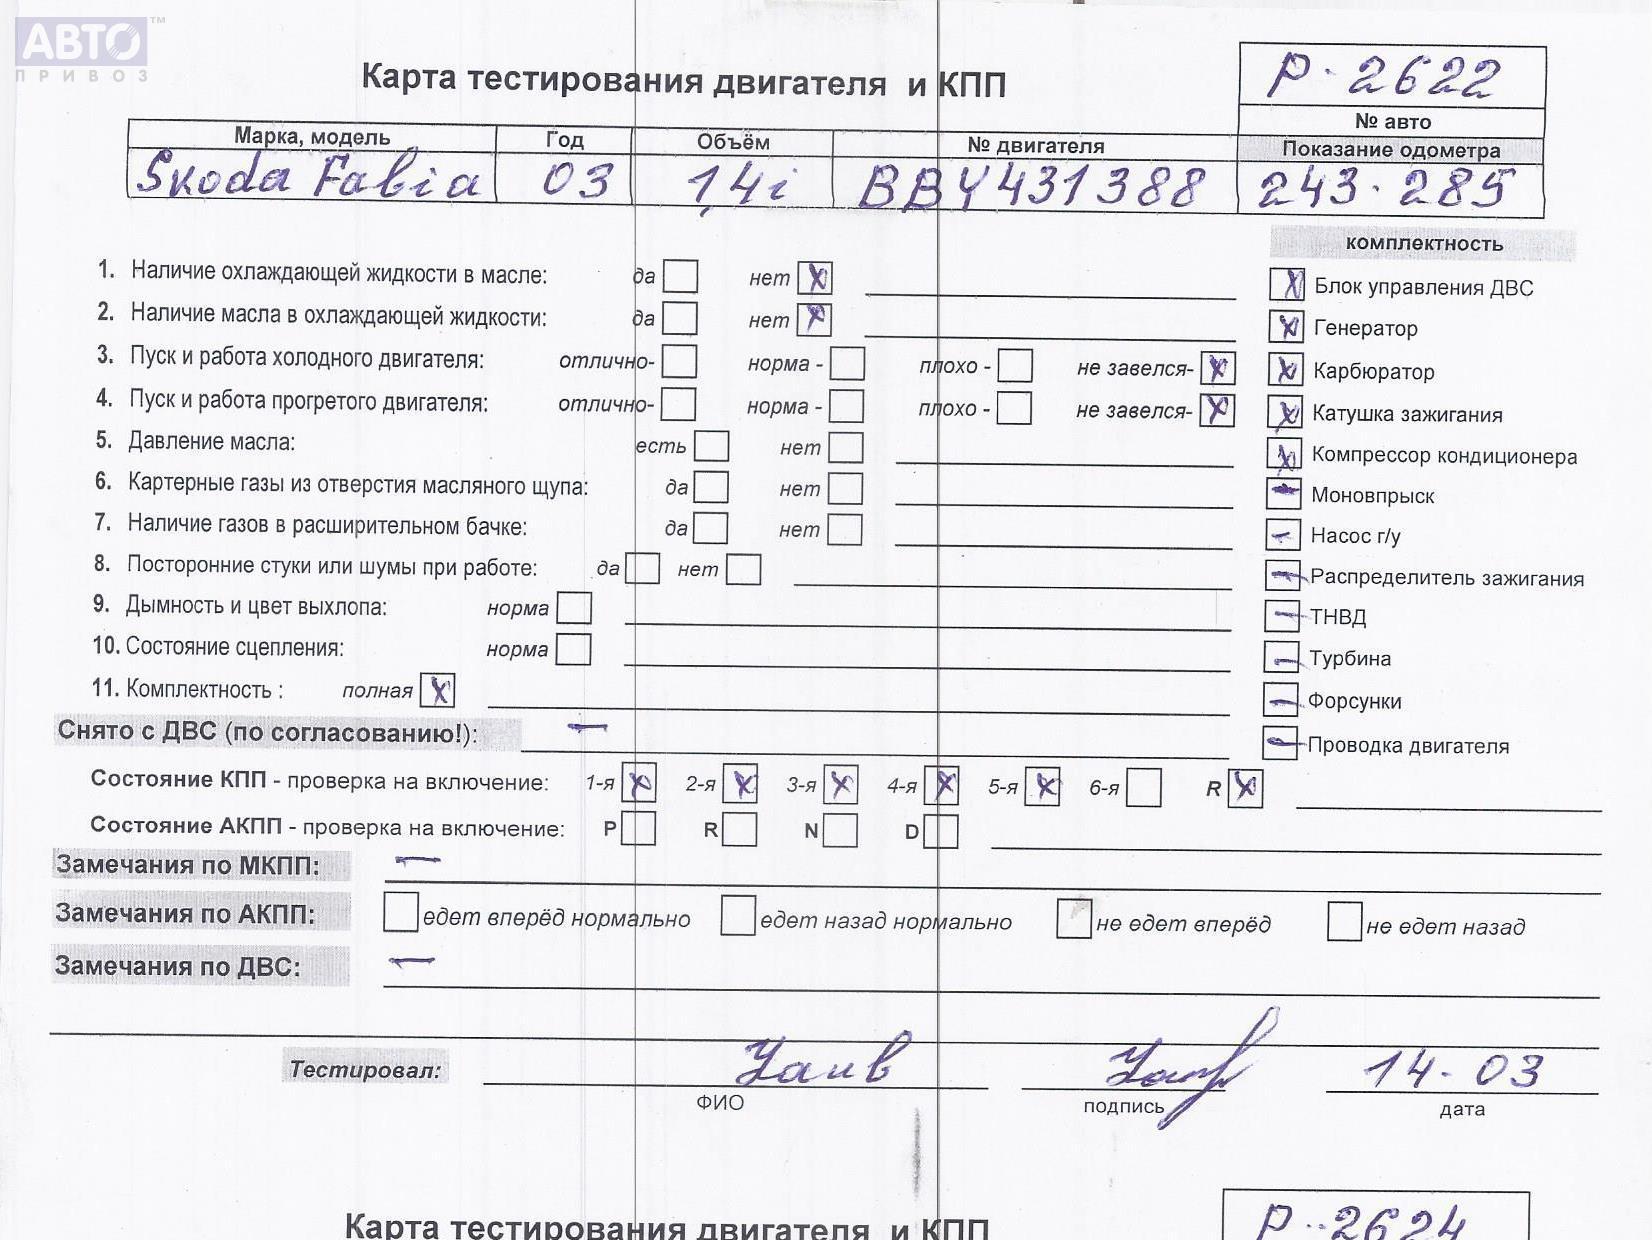 АВТО™
ПРИВОЗ
Карта тестирования двигателя и КПП
P-2622
№ авто
Марка, модель Год Объём № двигателя Показание одометра
Skoda Fabia 03 1,4i BBY431388 243.285
комплектность
1. Наличие охлаждающей жидкости в масле: да нет X Блок управления ДВС X
2. Наличие масла в охлаждающей жидкости: да нет X Генератор X
3. Пуск и работа холодного двигателя: отлично- норма - плохо - не завелся- X Карбюратор X
4. Пуск и работа прогретого двигателя: отлично- норма - плохо - не завелся- X Катушка зажигания X
5. Давление масла: есть нет X Компрессор кондиционера
6. Картерные газы из отверстия масляного щупа: да нет - Моновпрыск
7. Наличие газов в расширительном бачке: да нет - Насос г/у
8. Посторонние стуки или шумы при работе: да нет - Распределитель зажигания
9. Дымность и цвет выхлопа: норма - ТНВД
10. Состояние сцепления: норма - Турбина
11. Комплектность : полная X - Форсунки
Снято с ДВС (по согласованию!): - - Проводка двигателя
Состояние КПП - проверка на включение: 1-я X 2-я X 3-я X 4-я X 5-я X 6-я R X
Состояние АКПП - проверка на включение: P R N D
Замечания по МКПП: -
Замечания по АКПП: едет вперёд нормально едет назад нормально не едет вперёд не едет назад
Замечания по ДВС: -
Тестировал: 14-03
ФИО подпись дата
Карта тестирования двигателя и КПП
P-2624